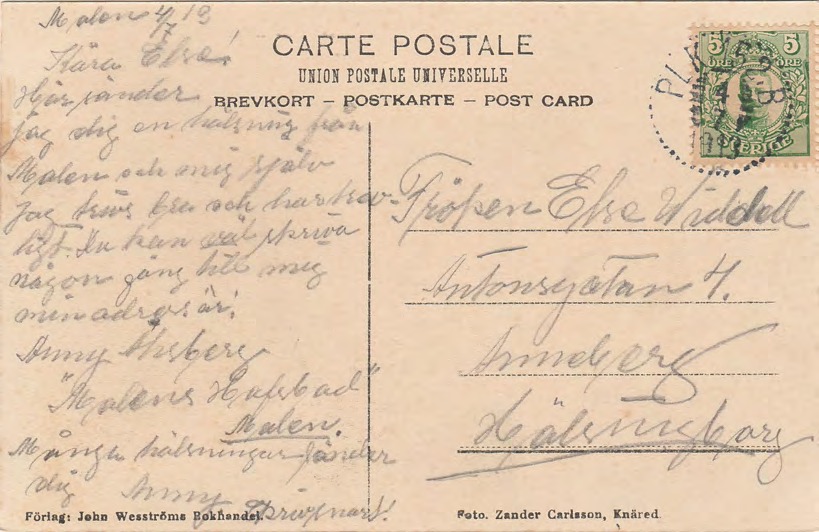 Malen 4/7 19
Kära Elsa!
Här sänder
jag dig en hälsning från
Malen och mig själv
Jag trivs bra och har trev-
ligt. Du kan väl skriva
någon gång till mig
min adress är:
Anny Ahsberg
"Malens Hafsbad"
Malen.
Många hälsningar sänder
dig Anny
skriv snart!
CARTE POSTALE
UNION POSTALE UNIVERSELLE
BREVKORT – POSTKARTE – POST CARD
5 5
ÖRE ÖRE
SVERIGE
PLK
B
Fröken Elsa Widdell
Antonsgatan 4.
Anneberg
Hälsingborg
Förlag: John Wesströms Bokhandel.
Foto. Zander Carlsson, Knäred.